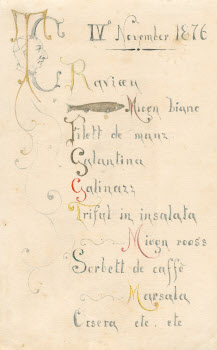 IV November 1876
Raviœu
Micon bianc
Filett de manz
Galantina
Galinazz
Trifol in insalata
Micon rooss
Sorbett de caffè
Marsala
etc. etc